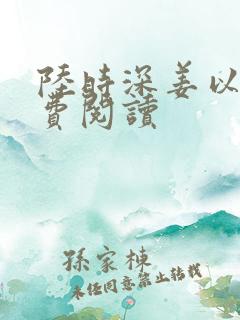 陸時深姜以
費閱讀
孫家棟
未經同意禁止轉載